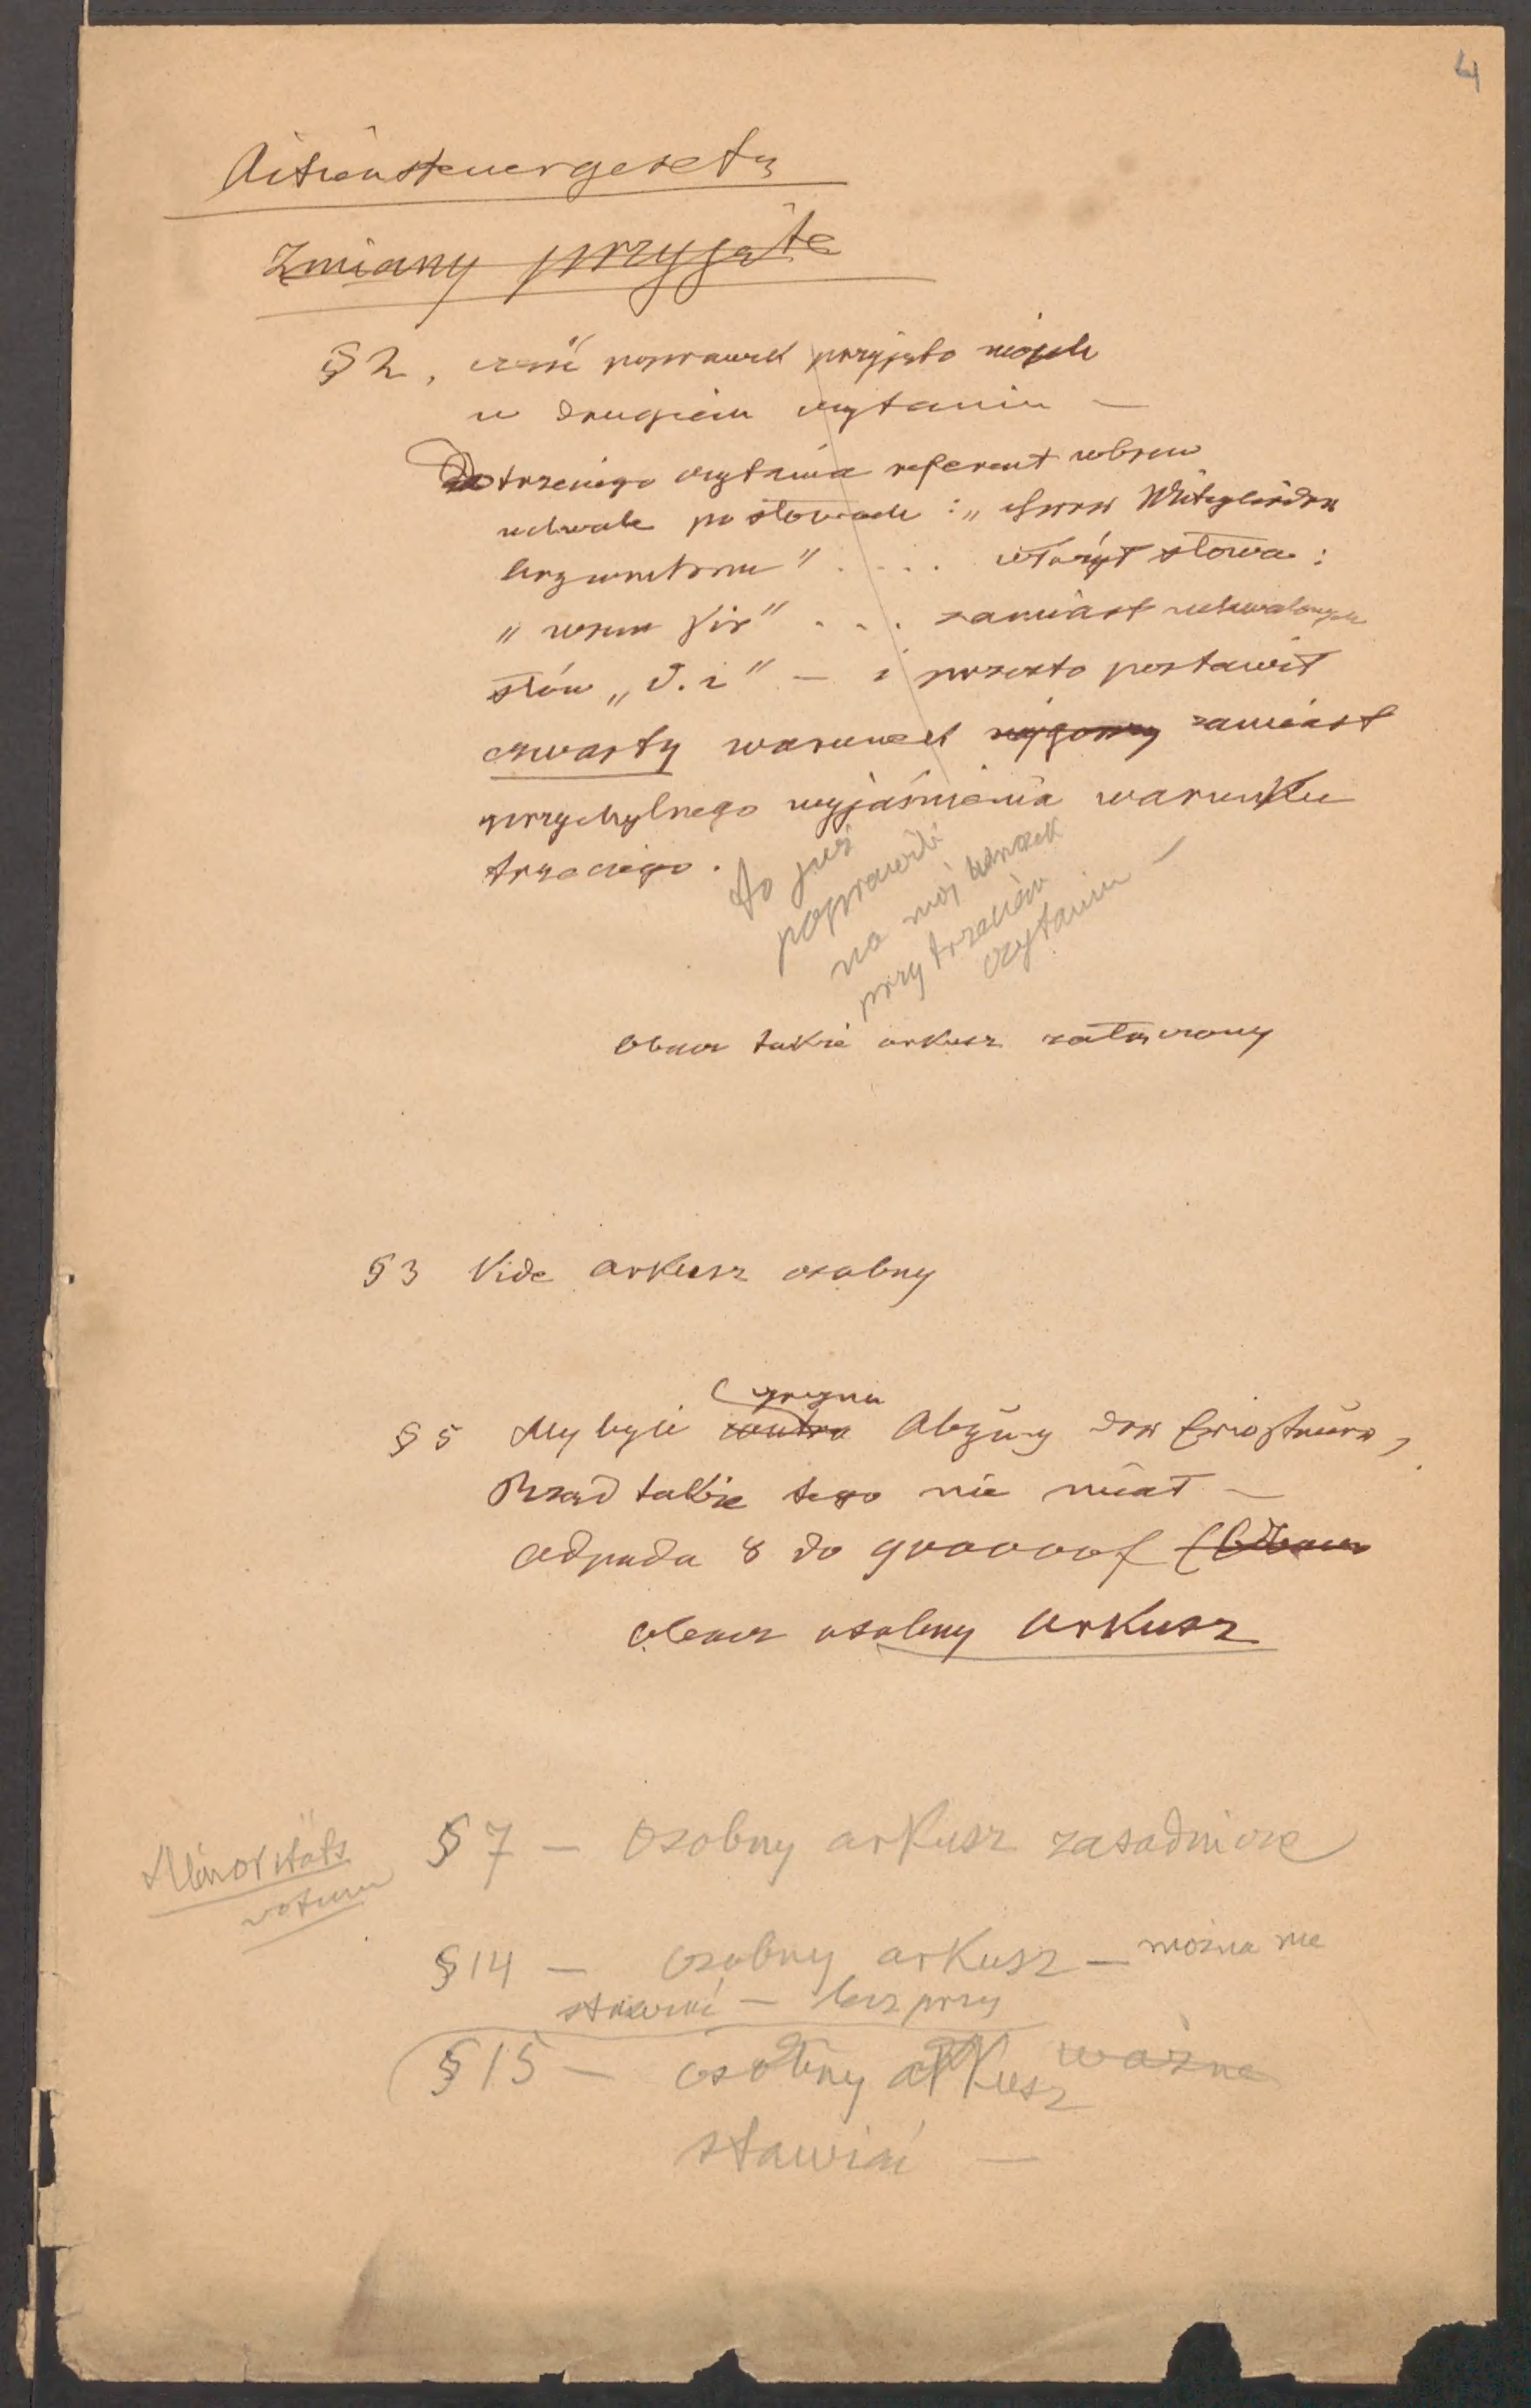 4
Actiensteuergesetz
Zmiany przyjęte
§ 2, cześć poprawek przyjęto moich
w drugiem czytaniu —
Do trzeciego czytania referent wbrew
uchwale po słowach : „ ihrer Mitglieder
begrenzen " . . . . włożył słowa :
" wenn sie " . . . zamiast uchwalonych
słów „ d. i " — i przezto postawił
czwarty warunek zamiast
przychylnego wyjaśnienia warunku
trzeciego .
to już
poprawili
na mój wniosek
przy trzeciem
czytaniu —
obacz także arkusz załączony
§ 3 Vide arkusz osobny
§ 5 My byli contra Abzug der
Rząd także tego nie miał —
odpada 8 do 900000 f
obacz osobny arkusz
Minoritäts
votum
§ 7 — osobny arkusz zasadnicze
§ 14 — osobny arkusz — można nie
stawiać — bez przy
§ 15 — osobny arkusz ważne
stawiać —